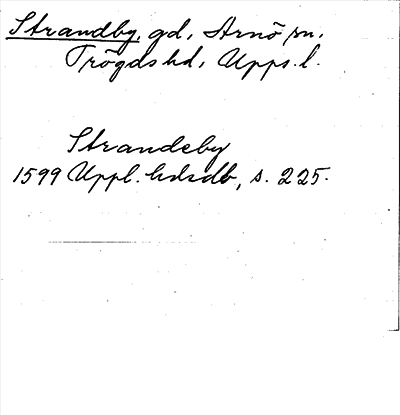 Strandby, gd, Arnö sn,
Trögds hd, Upps. l.
Strandeby
1599 Uppl. hdsdb, s. 225.